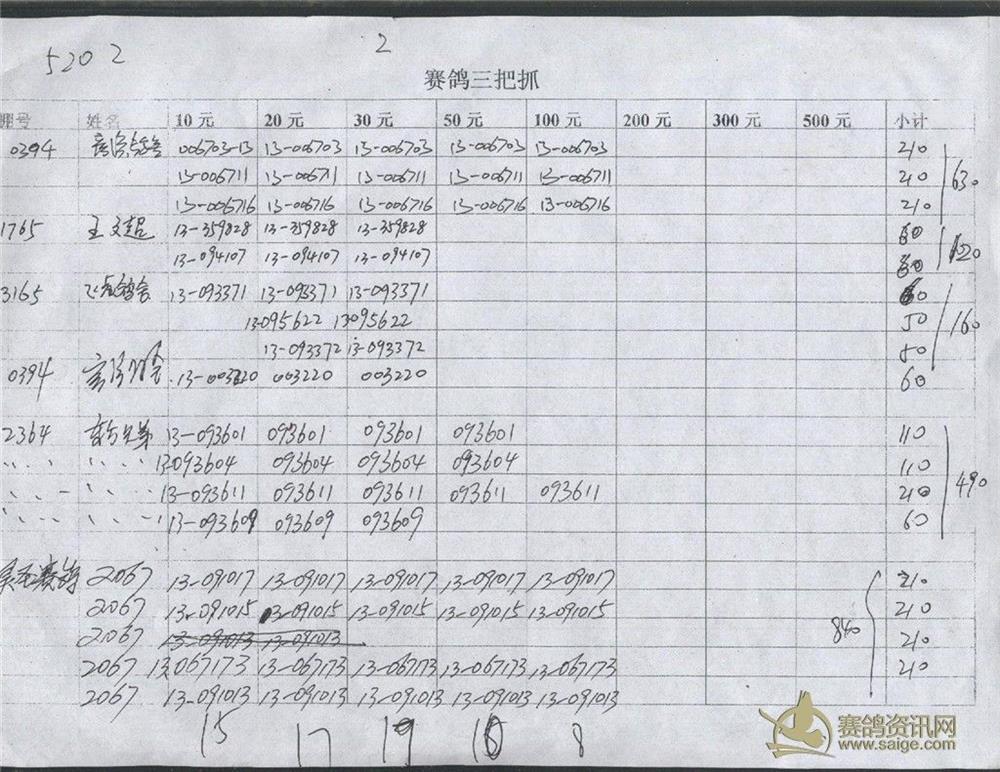 5202 2
赛鸽三把抓
棚号 姓名 10元 20元 30元 50元 100元 200元 300元 500元 小计
0394 006703-13 13-006703 13-006703 13-006703 13-006703 210
13-006711 13-00671 13-006711 13-006711 13-006711 210 630
13-006716 13-006716 13-006716 13-006716 13-006716 210
1765 王文超 13-359828 13-359828 13-359828 60
13-094107 13-094107 13-094107 60 120
3165 飞虎鸽舍 13-093371 13-093371 13-093371 60
13-095622 13095622 50 160
13-093372 13-093372 50
0394 13-003220 003220 003220 60
2364 13-093601 093601 093601 093601 110
13-093604 093604 093604 093604 110
13-093611 093611 093611 093611 093611 210 490
13-093609 093609 093609 60
2067 13-091017 13-091017 13-091017 13-091017 13-091017 210
2067 13-091015 13-091015 13-091015 13-091015 13-091015 210
2067 13-091013 13-091013 840 210
2067 13-067173 13-067173 13-067173 13-067173 13-067173 210
2067 13-091013 13-091013 13-091013 13-091013 13-091013
15 17 19 10 8
赛鸽资讯网
www.saige.com